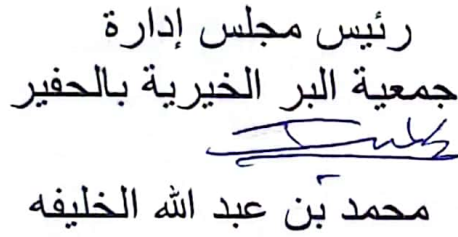 رئيس مجلس إدارة
جمعية البر الخيرية بالحفير
محمد بن عبد الله الخليفه